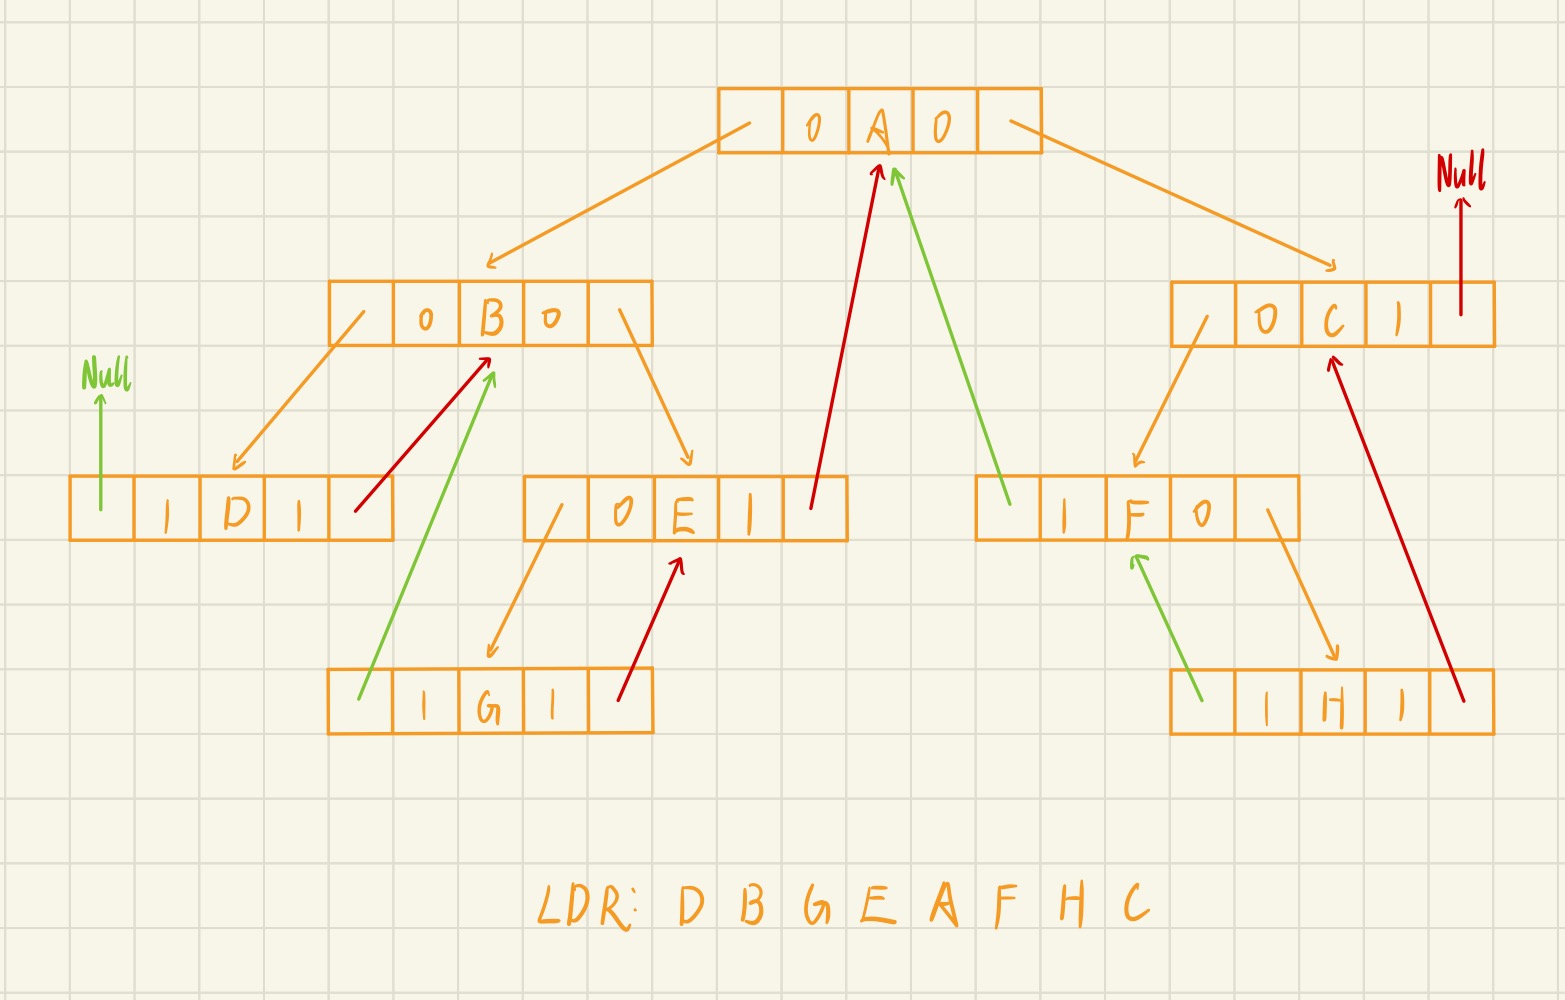 0 A 0
Null
0 B 0
0 C 1
Null
1 D 1
0 E 1
1 F 0
1 G 1
1 H 1
LDR: D B G E A F H C